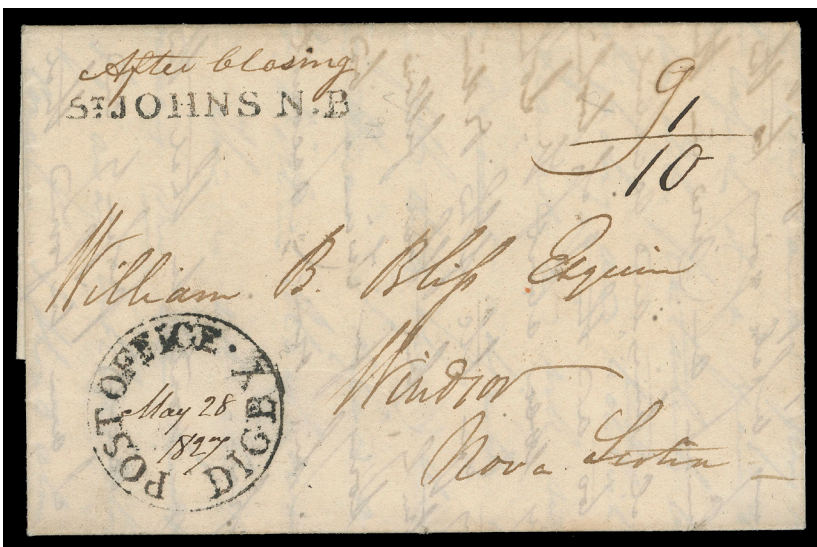 After Closing
ST JOHNS N.B
9
1/10
William B. Bliſs Esquire
Windsor
Nova Scotia
POST OFFICE · DIGBY
May 28
1827